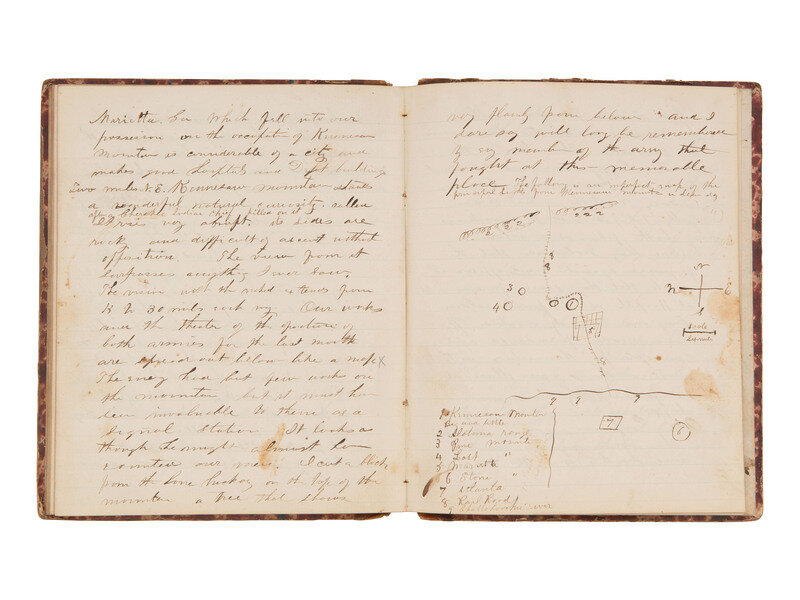 Marietta Ga which fell into our
possession on the occupat of Kinnesaw
Monutan is considerable of a city and
makes good hospitals and
Two miles N.E. Kennesaw mountain
a wonderful natural curiosity
after a Cherokee Indian Chief killed on it
very abrupt. its sides are
rock and difficult of ascent without
opposition. The view from it
surpasses anything I ever saw.
The vision with the naked extends from
to 30 mils each way. Our works
and the theater of the opperations of
both armies for the last month
are spread out below like a map
The enemy had but few works on
the mountin but it must have
been invaluable to them as a
Signal Station. It looks as
though he might almost have
counted our men. I cut a block
from the lone on the top of the
mountin a tree that shows
very plainly from below and I
dare say will long be remembered
by evry member of the army that
fought at this memorable
place. The following is an imperfect map of the
principal from Kennesaw mountin
2 2 2
2 2 2
8
8
N
E
S
3
4
5
Scale
9 9 9
7
6
1 Kinnesaw Mountin
Big and little
2 Alatoona rang
3 Pine Mountin
4 Lost "
5 Marietta
6 Stone "
7 Atlanta
8 Rail Road
9 river